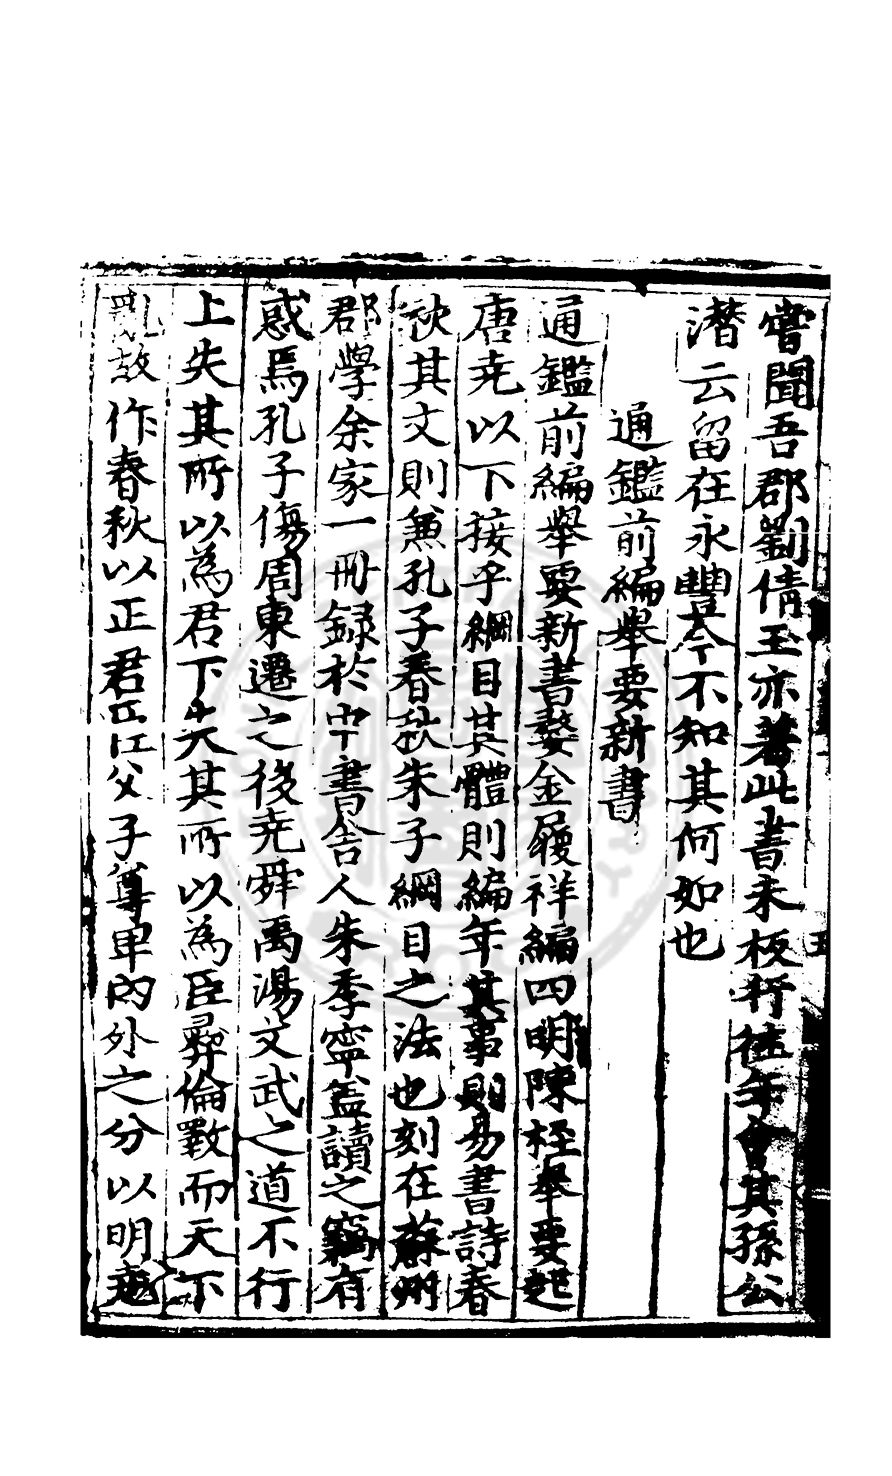 嘗聞吾郡劉倩玉亦著此書未板行徃年會其孫公
潛云留在永豐今不知其何如也
通鑑前編舉要新書
通鑑前編舉要新書婺金履祥編四明陳桱舉要起
唐堯以下接乎綱目其體則編年其事則易書詩春
秋其文則兼孔子春秋朱子綱目之法也刻在蘇州
郡學余家一冊録於中書舍人朱季寧盖讀之竊有
惑焉孔子傷周東遷之後堯舜禹湯文武之道不行
上失其所以為君下失其所以為臣彛倫斁而天下
亂故作春秋以正君臣父子尊卑內外之分以明
五